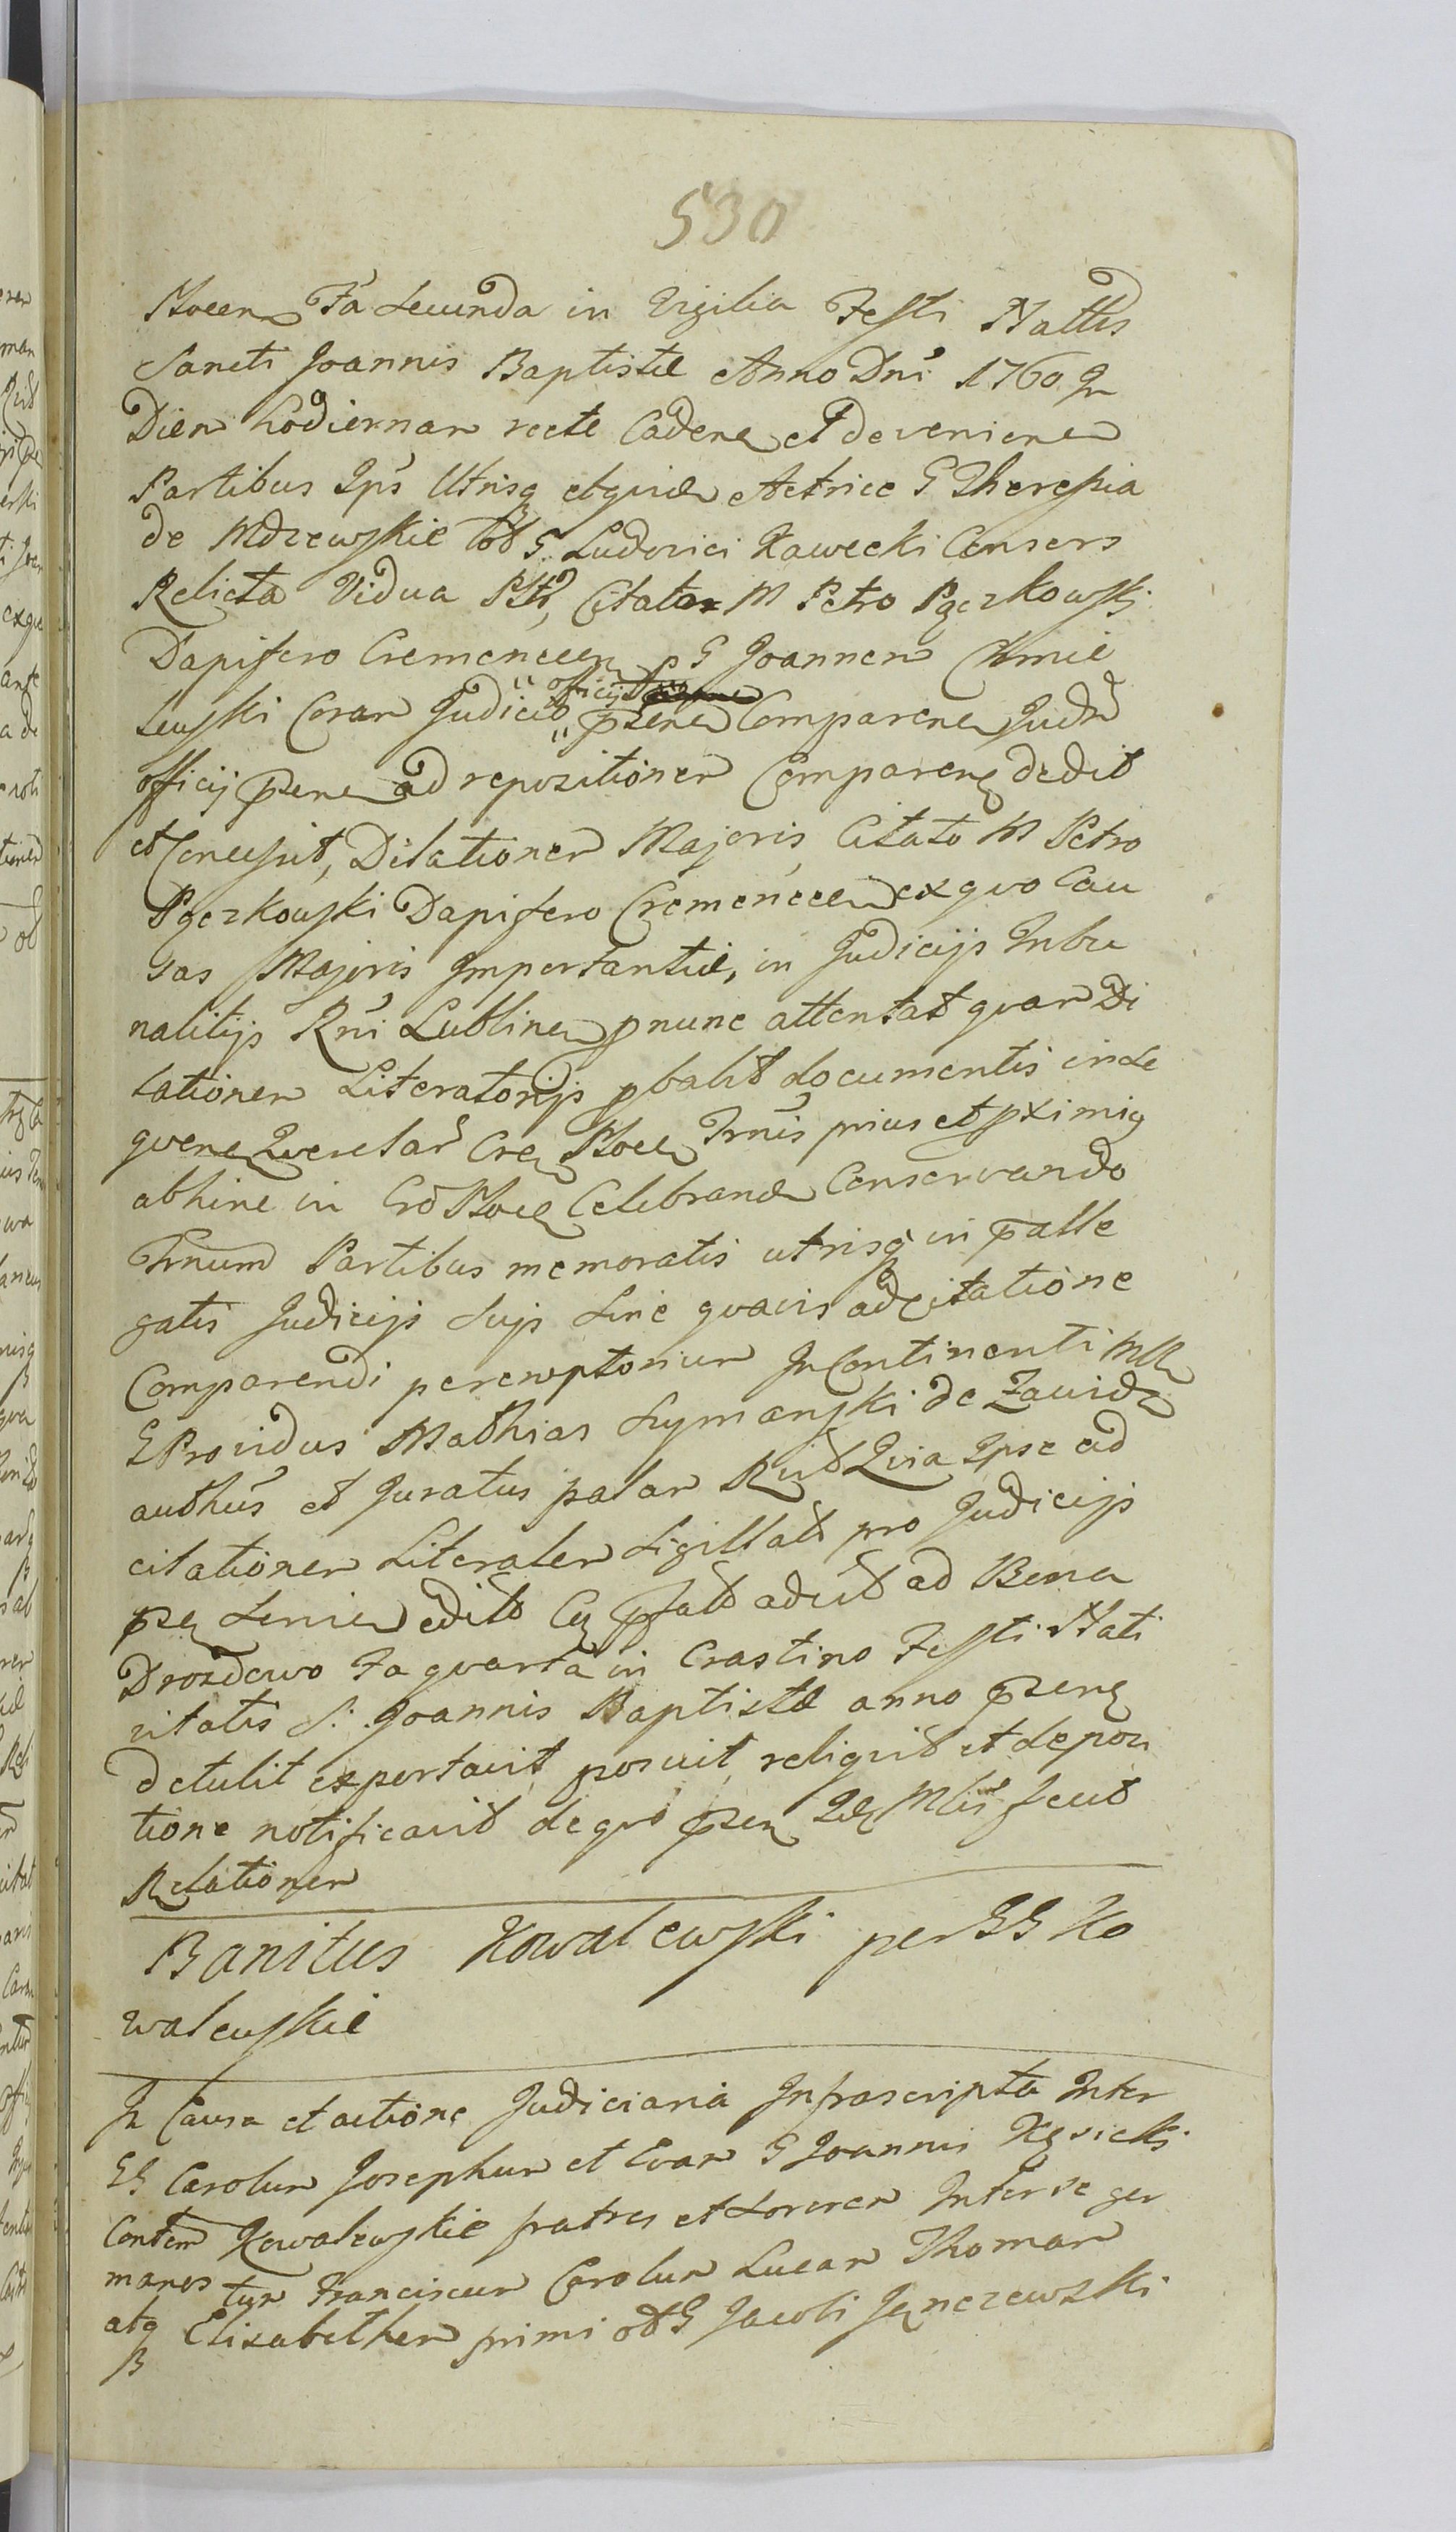 530
Stocen Fa Secunda in Vigilia Festi Nattis
Sancti Joannis Baptistæ Anno Dni 1760 In
Diem hodiernam recte Caden et devenien
Partibus Ips Utrisq etquide Actrice G Theresia
de Mdzewskie tot G Ludovici Kawecki Consors
Relicta Vidua Citato M Petro Pączkowski
Dapifero Cremenecen p G Joannem Chmie
lewski Coram Judicio officij psen Comparen Judm
officij psen ad repozitionem Comparen dedit
et Concessit, Dilationem Majoris Citato M Petro
Pączkowski Dapifero Cremenecen exquo Cau
sas Majoris Importantiæ, in Judicijs Tribu
nalitijs Rni Lublinen pnunc attentat quam Di
lationem Literatorijs pbabit documentis inse
quen Querelar Cren Stocen Trnis prius et pximis
abhinc in Cro Stocen Celebrand Conservando
Trnum Partibus memoratis utrisq in palle
gatis Judicijs Suis Sine quavis adcitatione
Comparendi peremptorium In Continenti
G Providus Mathias Szymanski de Zawid
authus et Juratus palam Quia Ipse ad
citationem Literalem Sigillat pro Judicijs
psen Servien edit adiit ad Bona
Drozdowo Fa quarta in Crastino Festi Nati
vitatis S. Joannis Baptistæ anno psen
detulit exportavit posuit reliquit et depozi
tione notificavit dequo psen fecit
Relationem
Banitus Kowalewski per GG Ko
walewskie
In Causa et actione Judiciaria Infrascripta Inter
GG Carolum Josephum et Evam G Joannis
Contem Kowalewskie fratres et Sororem Inter se ger
manos tum Franciscum Carolum Lucam Thomam
atq Elisabethem primi ot G Jacobi Jęnczewski